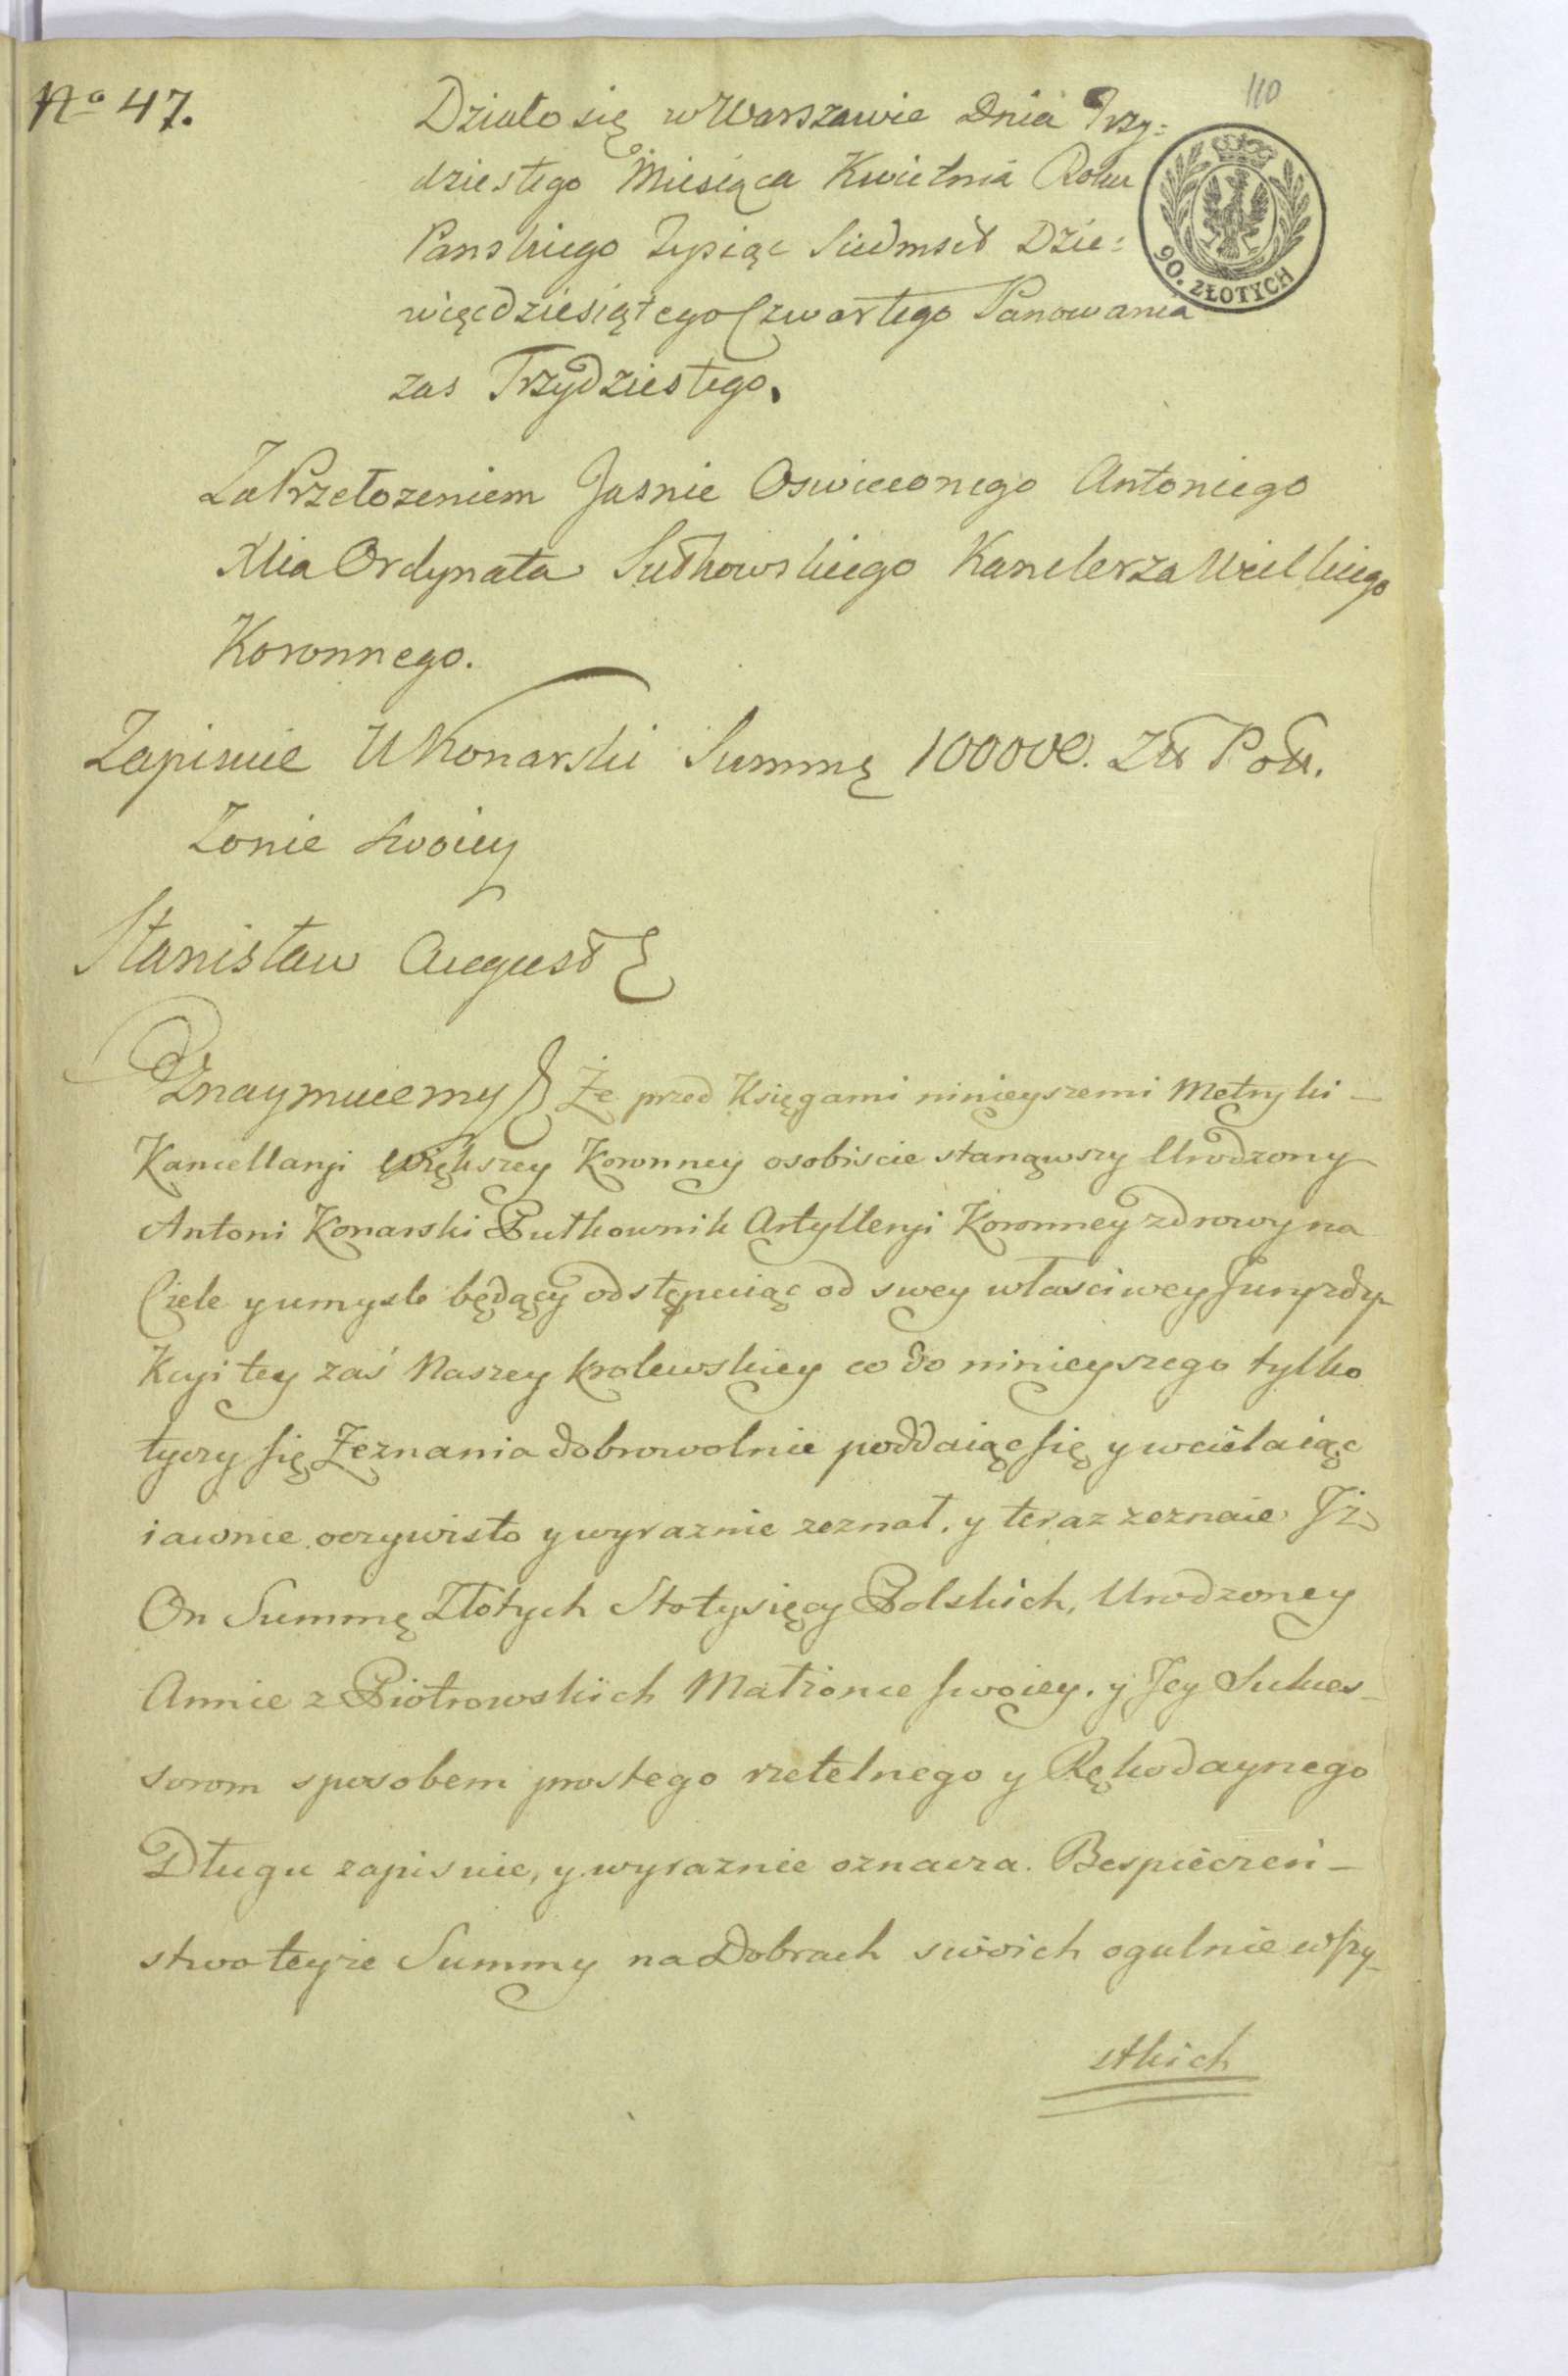 110
No 47.
Działo się w Warszawie Dnia Trzy=
dziestego Miesiąca Kwietnia Roku
Panskiego Tysiąc Siedmset Dzie=
więcdziesiątego Czwartego Panowania
zas Trzydziestego.
90. ZŁOTYCH
Za Przełozeniem Jasnie Oswieconego Antoniego
Xcia Ordynata Sułkowskiego Kanclerza Wielkiego
Koronnego.
Zapisuie U Konarski Summę 100000. Zł Pol.
Zonie swoiey
Stanisław August
Oznaymuiemy Że przed Księgami ninieyszemi Metryki -
Kancellaryi Większey Koronney osobiscie stanąwszy Urodzony
Antoni Konarski Pułkownik Artylleryi Koronney zdrowy na
Ciele y umysle będący odstępuiąc od swey własciwey Juryzdy-
Kcyi tey zaś Naszey krolewskiey co do ninieyszego tylko
tyczy się Zeznania dobrowolnie poddaiąc się y wcielaiąc
iawnie oczywisto y wyraznie zeznał, y teraz zeznaie Jż
On Summę Złotych Sto tysięcy Polskich, Urodzoney
Annie z Piotrowskich Małzonce swoiey. y Jey Sukces-
sorom sposobem prostego rzetelnego y Rękodaynego
Długu zapisuie, y wyraznie oznacza. Bespieczeń-
stwo teyże Summy na Dobrach swoich ogulnie wszy-
stkich